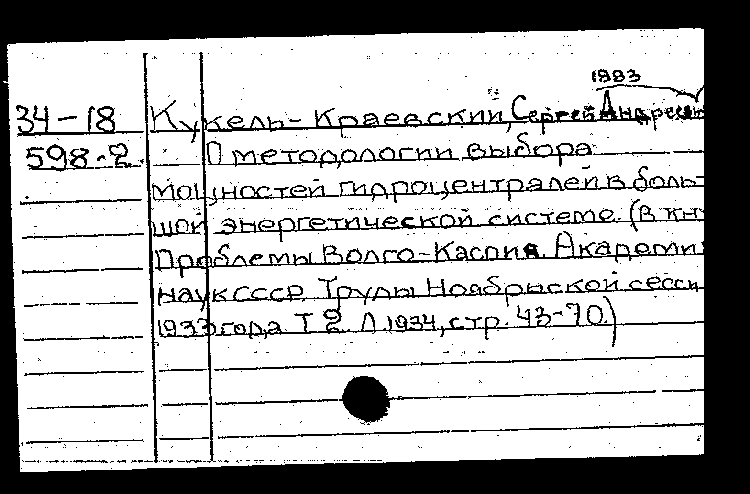 1883
34-18 Кукель-Краевский, Сергей Андреевич
598-2 О методологии выбора
мощностей гидроцентралей в боль-
шой энергетической системе. (В кн:
Проблемы Волго-Каспия. Академия
наук СССР. Труды Ноябрьской сессии
1933 года. Т 2. Л. 1934, стр. 43-70.)